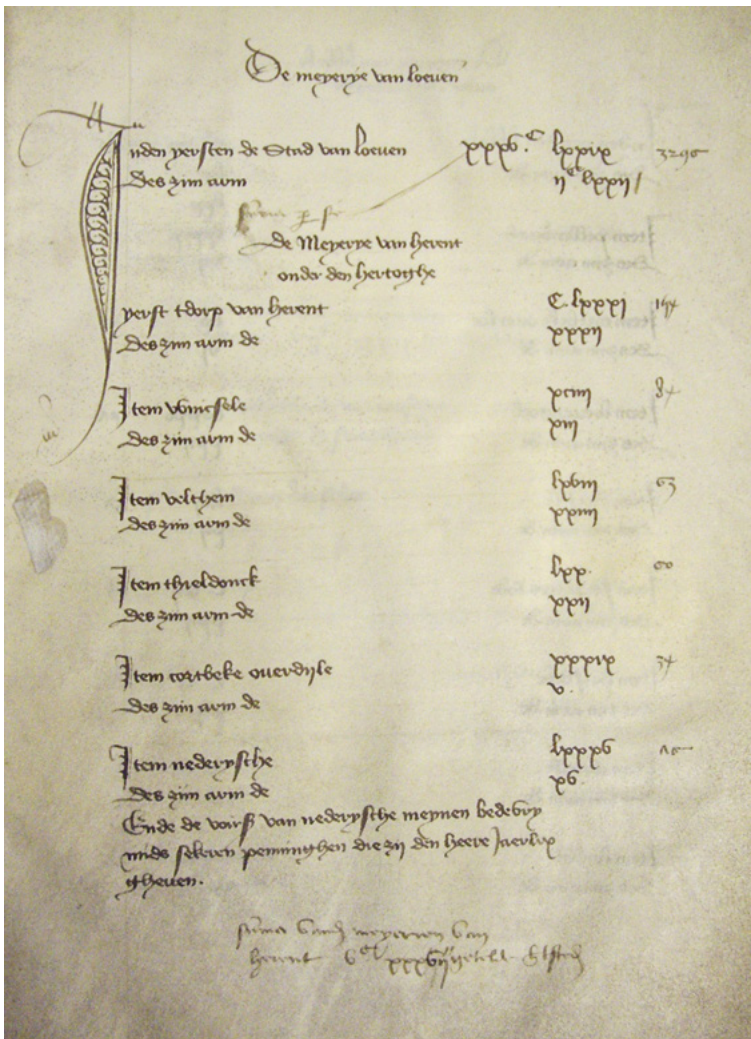 De meyerye van loeven
Inden yersten de Stad van loeven xxxv.C lxxix 3296
Des zijn arm ijC lxxij
Suma per se
De Meyerye van herent
onder den hertoghe
yerst tdorp van herent C. lxxxj
Des zijn arm de xxxij
Item wincsele xciiij 84
Des zijn arm de xiij
Item velthem lxviij 63
Des zijn arm de xxiiij
Item thieldonck lxx. 60
Des zijn arm de xxij
Item cortbeke overdijle xxxix 34
Des zijn arm de v.
Item nederyssche lxxxv
Des zijn arm de xv.
Ende de voirs van nederyssche meynen bedevry
mids sekeren penninghen die zij den heere Jaerlix
gheven.
Suma vand meyeryen van
herent vC xxxvij getelt